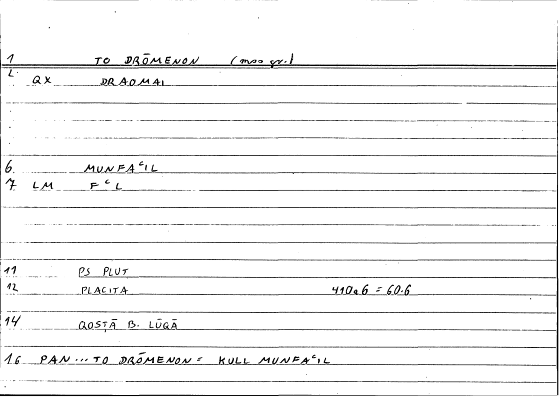 1 TO DRŌMENON (mss gr.)
2.
QX DRAOMAI
6. MUNFAᶜIL
7 LM FᶜL
11 PS PLUT
12 PLACITA 410a6 = 60.6
14 QOSṬĀ B. LŪQĀ
16 PAN...TO DRŌMENON = KULL MUNFAᶜIL